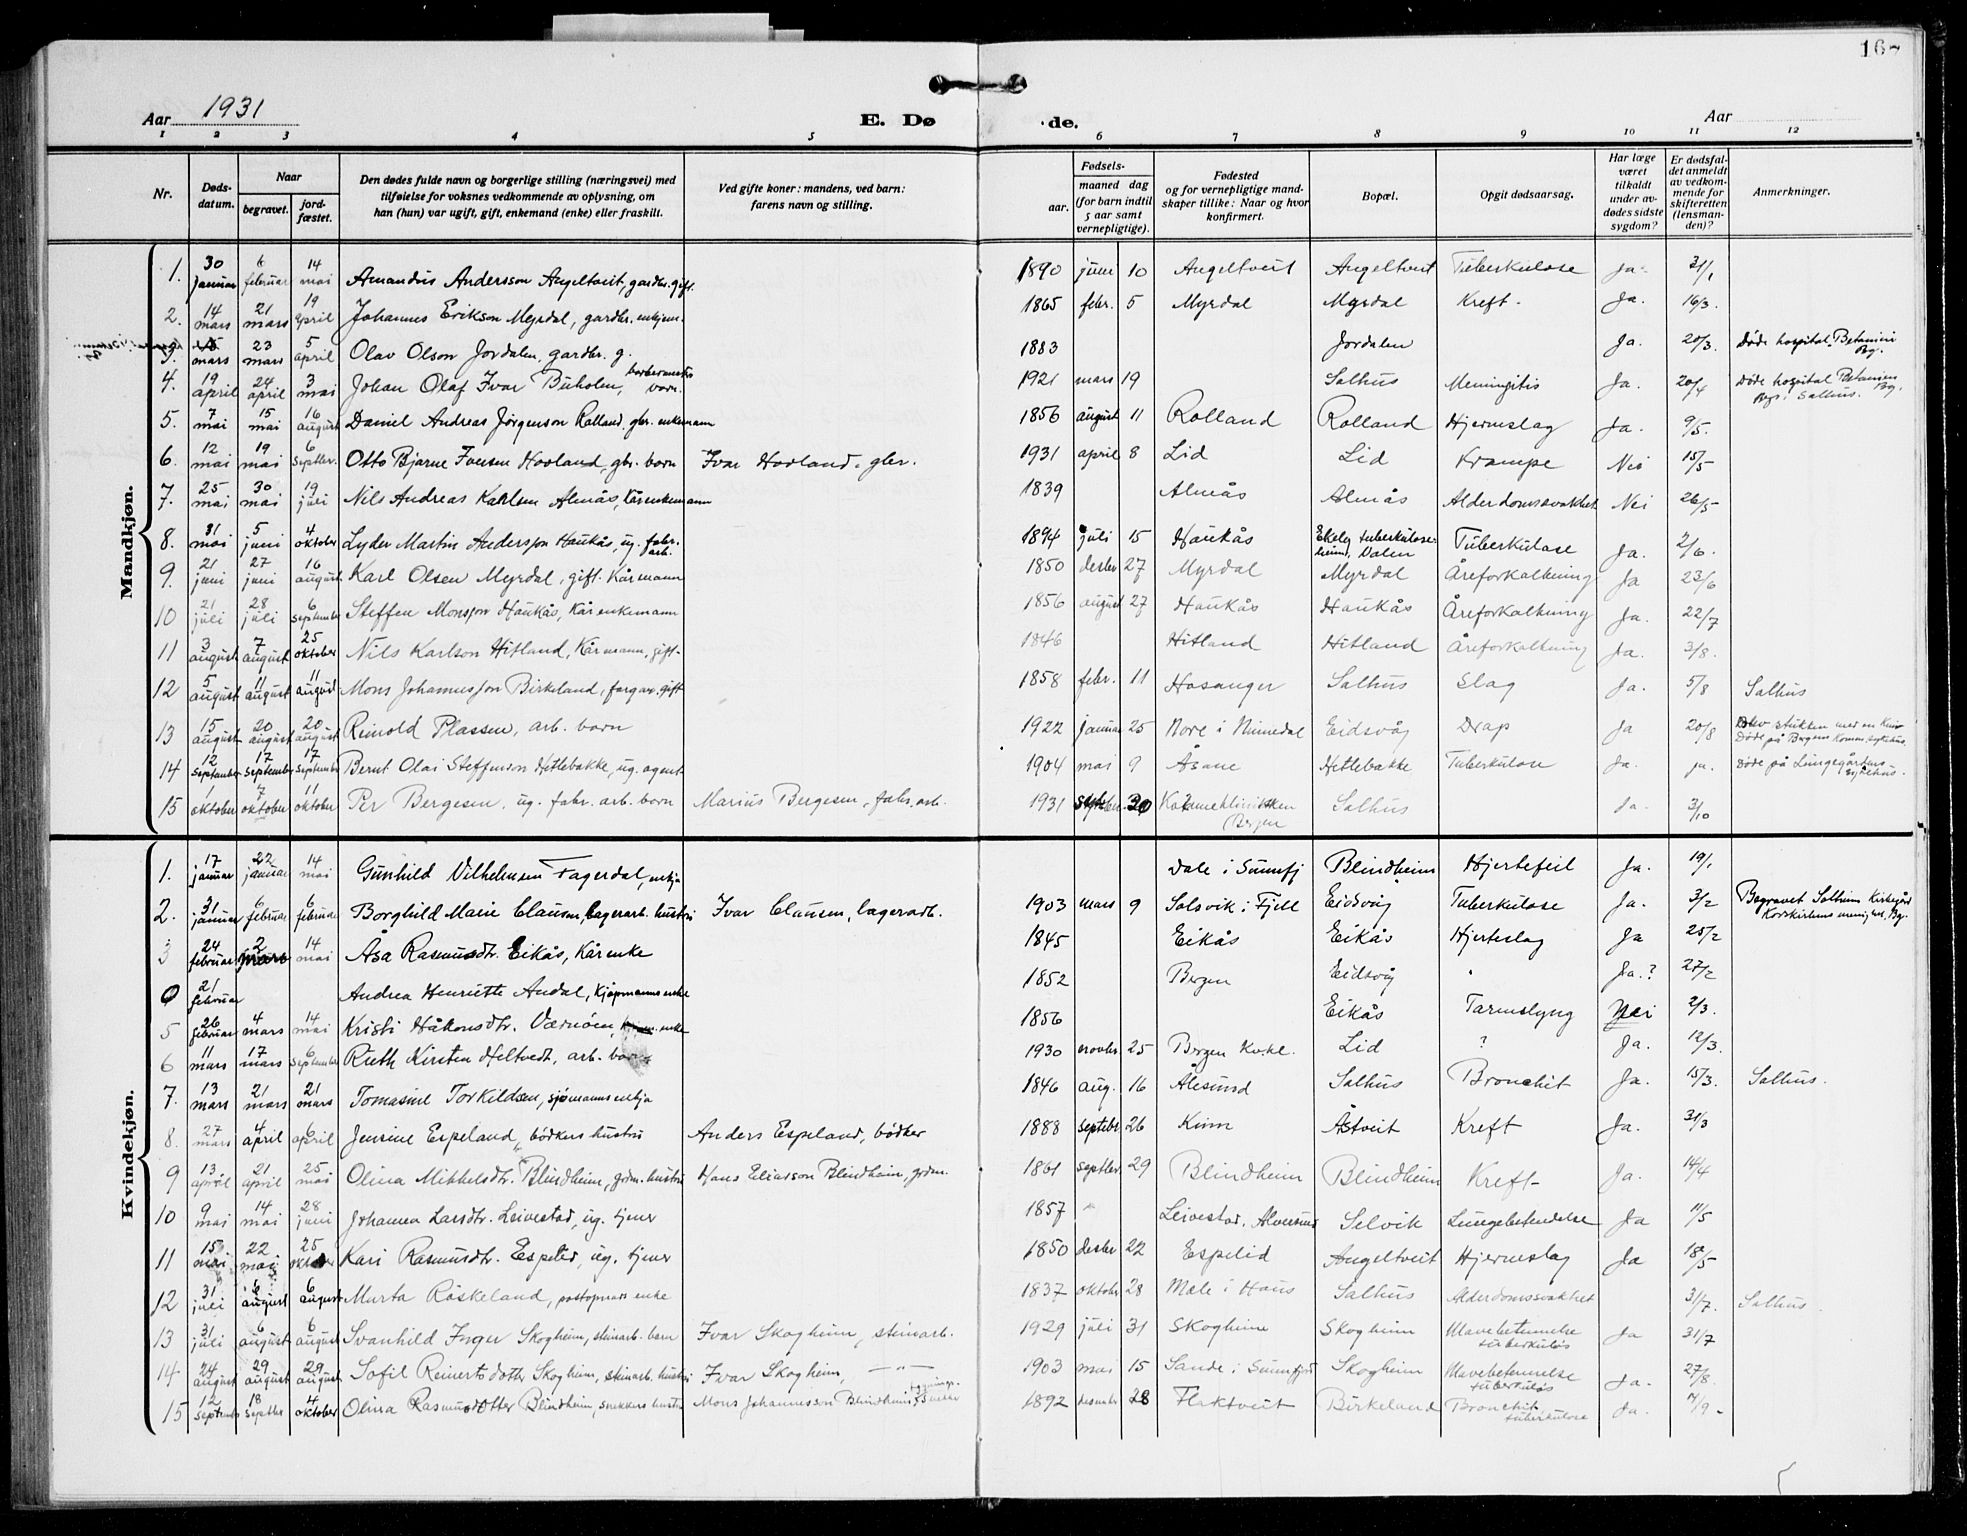 167
Aar 1931
E. Dø de.
Aar
1 2 3 4 5 6 7 8 9 10 11 12
Nr.
Døds-datum.
Naar
begravet.
jord-fæstet.
Den dødes fulde navn og borgerlige stilling (næringsvei) med
tilføielse for voksnes vedkommende av oplysning, om
han (hun) var ugift, gift, enkemand (enke) eller fraskilt.
Ved gifte koner: mandens, ved barn:
farens navn og stilling.
Fødsels-
aar.
maaned dag
(for barn indtil
5 aar samt
vernepligtige).
Fødested
og for vernepligtige mand-
skaper tillike: Naar og hvor
konfirmert.
Bopæl.
Opgit dødsaarsag.
Har læge
været
tilkaldt
under av-
dødes sidste
sygdom?
Er dødsfal-
det anmeldt
av vedkom-
mende for
skifteretten
(lensman-
den)?
Anmerkninger.
Mandkjøn.
1. 30 januar 6 februar 14 mai Amandus Andersson Angeltveit, gardbr. gift. 1890 juni 10 Angeltveit Angeltveit Tuberkulose Ja. 31/1
2. 14 mars 21 mars 19 april Johannes Erikson Myrdal, gardbr. enkjem. 1865 febr. 5 Myrdal Myrdal Kreft. Ja. 16/3.
3. mars 23 mars 5 april Olav Olson Jordalen, gardbr. g. 1883 Jordalen Ja. 20/3. Døde hospital. Betanien Bg.
4. 19 april 24 april 3 mai Johan Olaf Ivar Buholm, barn. 1921 mars 19 Salhus Meningitis Ja. 20/4 Døde hospital Betanien Bg. Salhus.
5. 7 mai 15 mai 16 august Daniel Andreas Jørgenson Rolland. gbr. enkemann 1856 august 11 Rolland Rolland Hjerneslag Ja. 9/5.
6. 12 mai 19 mai 6 septbr. Otto Bjarne Iversen Hovland, gbr. barn Ivar Hovland. gbr. 1931 april 8 Lid Lid Krampe Nei 15/5
7. 25 mai 30 mai 19 juli Nils Andreas Karlsen Almås, Kårenkemann 1839 Almås Almås Alderdomssvakhet Nei 26/5
8. 31 mai 5 juni 4 oktober Lyder Martin Andersson Haukås, ug. fabr. arb. 1894 juli 15 Haukås Ekely tuberkulose-heim, Dalen Tuberkulose Ja. 2/6.
9. 21 juni 27 juni 16 august Karl Olsen Myrdal, gift. Kårmann 1850 desbr 27 Myrdal Myrdal Åreforkalkning Ja 23/6
10 21 juli 28 juli 6 september Steffen Monsson Haukås, Kårenkemann 1856 august 27 Haukås Haukås Åreforkalkning Ja. 22/7
11 3 august 7 august 25 oktober Nils Karlson Hitland, Kårmann, gift- 1846 Hitland Hitland Åreforkalkning Ja. 3/8.
12 5 august 11 august 11 august Mons Johannesson Birkeland, fargar. gift 1858 febr. 11 Hosanger Salhus Slag Ja. 5/8 Salhus
13 15 august 20 august 20 august Reinold Plassen, arb. barn 1922 januar 25 Nore i Numedal Eidsvåg Drap Ja 20/8 Blev stukken med en Kniv Døde på Bergens Komm. sykehus.
14 12 september 17 september 17 september Bernt Olai Steffenson Hetlebakke, ug. agent 1904 mai 9 Åsane Hetlebakke Tuberkulose Ja. ja. Døde på Lungegårdens sykehus.
15 1 oktober 7 oktober 11 oktober Per Bergesen, ug. fabr. arb. barn Marius Bergesen, fabr. arb. 1931 september 30 Kvinneklinikken Bergen Salhus Ja. 3/10
Kvindekjøn.
1. 17 januar 22 januar 14 mai Gunhild Vilhelmsen Fagerdal, enkja Dale i Sunnfj Blindheim Hjertefeil Ja. 19/1
2. 31 januar 6 februar 6 februar Borghild Marie Clausen, lagerarb. hustru Ivar Clausen, lagerarb. 1903 mars 9 Solsvik i Fjell Eidsvåg Tuberkulose Ja. 3/2 Begravet Solheim Kirkegård Korskirkens menighet, Bg.
3 24 februar 2 mars 14 mai Åsa Rasmusdtr. Eikås, Kårenke 1845 Eikås Eikås Hjerteslag Ja 25/2
21 februar Andrea Henriette Andal, Kjøpmanns enke 1852 Bergen Eidsvåg " Ja.? 27/2
5 26 februar 4 mars 14 mai Kristi Håkonsdtr. Værnøen, enke 1856 Eikås Tarmslyng Nei 2/3.
6 11 mars 17 mars 6 september Ruth Kirsten Heltvedt, arb. barn 1930 novbr 25 Bergen Kv.kl. Lid ? Ja. 12/3.
7. 13 mars 21 mars 21 mars Tomasine Torkildsen, sjømannsenkja 1846 aug. 16 Ålesund Salhus Bronchit Ja. 15/3. Salhus.
8. 27 mars 4 april 6 april Jensine Espeland, bødkers hustru Anders Espeland, bødker 1888 septbr 26 Kinn Åstveit Kreft Ja. 31/3
9 13 april 21 april 25 mai Olina Mikkelsdtr. Blindheim, grdm. hustru Hans Eliasson Blindheim, grdm. 1861 septbr. 29 Blindheim Blindheim Kreft Ja. 14/4
10 9 mai 14 mai 28 juni Johanna Larsdtr. Leivestad, ug. tjener 1857 Leivestad. Alversund Selvik Lungebetendelse Ja 11/5
11 15 mai 22 mai 25 oktober Kari Rasmusdtr. Espelid, ug. tjener 1850 desbr 22 Espelid Angeltveit Hjerneslag Ja 18/5
12 31 juli 6 august 6 august Marta Röskeland, postopnars enke 1837 oktober 28 Mæle i Haus Salhus Alderdomssvakhet 31/7. Salhus.
13 31 juli 6 august 6 august Svanhild Inger Skogheim, steinarb. barn Ivar Skogheim, steinarb. 1929 juli 31 Skogheim Skogheim Mavebetennelse tuberkuløs Ja 31/7
14 24 august 29 august 29 august Sofie Reinertsdotter Skogheim, steinarb. hustru Ivar Skogheim, —"— 1903 mai 15 Sande i Sunnfjord Skogheim Mavebetennelse tuberkuløs Ja. 27/8.
15 12 septmbr 18 septbr 4 oktober Olina Rasmusdotter Blindheim, snekkers hustru Mons Johannesson Blindheim, 1892 desember 28 Flaktveit Birkeland Bronchit tuberkulose Ja. 14/9.